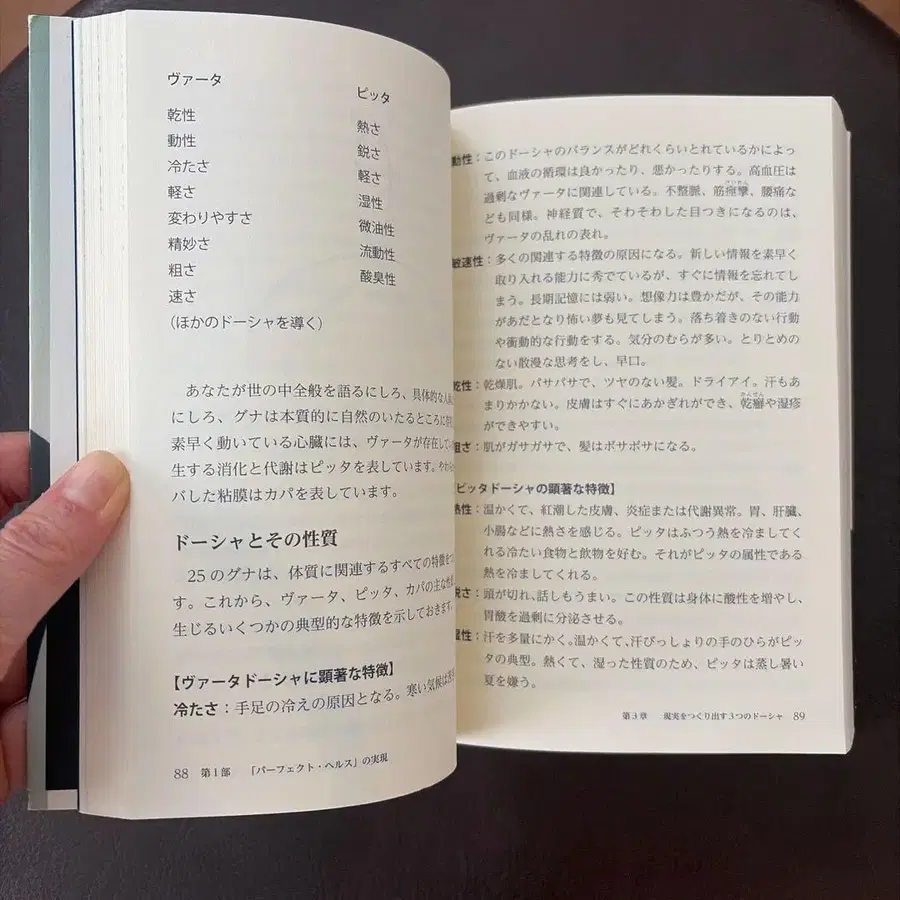 ヴァータ
乾性
動性
冷たさ
軽さ
変わりやすさ
精妙さ
粗さ
速さ
(ほかのドーシャを導く)
ピッタ
熱さ
鋭さ
軽さ
湿性
微油性
流動性
酸臭性
あなたが世の中全般を語るにしろ、具体的な人
にしろ、グナは本質的に自然のいたるところに
素早く動いている心臓には、ヴァータが存在して
生する消化と代謝はピッタを表しています。
バした粘膜はカパを表しています。
ドーシャとその性質
25のグナは、体質に関連するすべての特徴を
す。これから、ヴァータ、ピッタ、カパの主な性
生じるいくつかの典型的な特徴を示しておきます。
【ヴァータドーシャに顕著な特徴】
冷たさ:手足の冷えの原因となる。寒い気候は
88 第1部 「パーフェクト・ヘルス」の実現
動性:このドーシャのバランスがどれくらいとれているかによっ
て、血液の循環は良かったり、悪かったりする。高血圧は
過剰なヴァータに関連している。不整脈、筋痙攣、腰痛な
ども同様。神経質で、そわそわした目つきになるのは、
ヴァータの乱れの表れ。
敏速性:多くの関連する特徴の原因になる。新しい情報を素早く
取り入れる能力に秀でているが、すぐに情報を忘れてし
まう。長期記憶には弱い。想像力は豊かだが、その能力
があだとなり怖い夢も見てしまう。落ち着きのない行動
や衝動的な行動をする。気分のむらが多い。とりとめの
ない散漫な思考をし、早口。
乾性:乾燥肌。パサパサで、ツヤのない髪。ドライアイ。汗もあ
まりかかない。皮膚はすぐにあかぎれができ、乾癬や湿疹
ができやすい。
粗さ:肌がガサガサで、髪はボサボサになる。
ピッタドーシャの顕著な特徴】
熱性:温かくて、紅潮した皮膚、炎症または代謝異常。胃、肝臓、
小腸などに熱さを感じる。ピッタはふつう熱を冷ましてく
れる冷たい食物と飲物を好む。それがピッタの属性である
熱を冷ましてくれる。
鋭さ:頭が切れ、話しもうまい。この性質は身体に酸性を増やし、
胃酸を過剰に分泌させる。
湿性:汗を多量にかく。温かくて、汗びっしょりの手のひらがピッ
タの典型。熱くて、湿った性質のため、ピッタは蒸し暑い
夏を嫌う。
第3章 現実をつくり出す3つのドーシャ 89